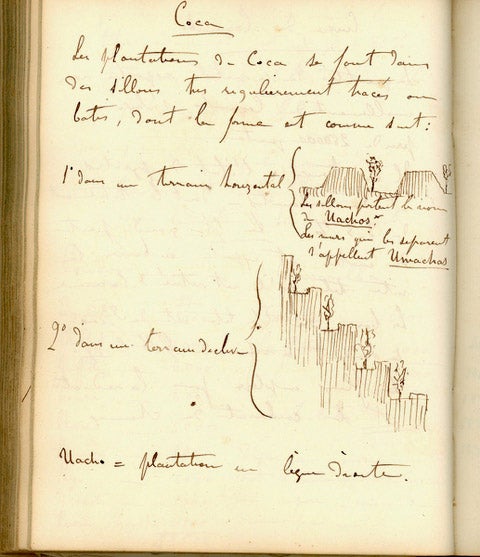 Coca
Les plantations de Coca se font dans
des sillons très regulièrement tracés ou
batis, dont la forme est comme suit:
1º dans un terrain horizontal
Les sillons portent le nom
de Uachos
Les murs qui les separent
s'appellent Umachas
2º dans un terrain declive
Uacho = plantation en ligne droite.